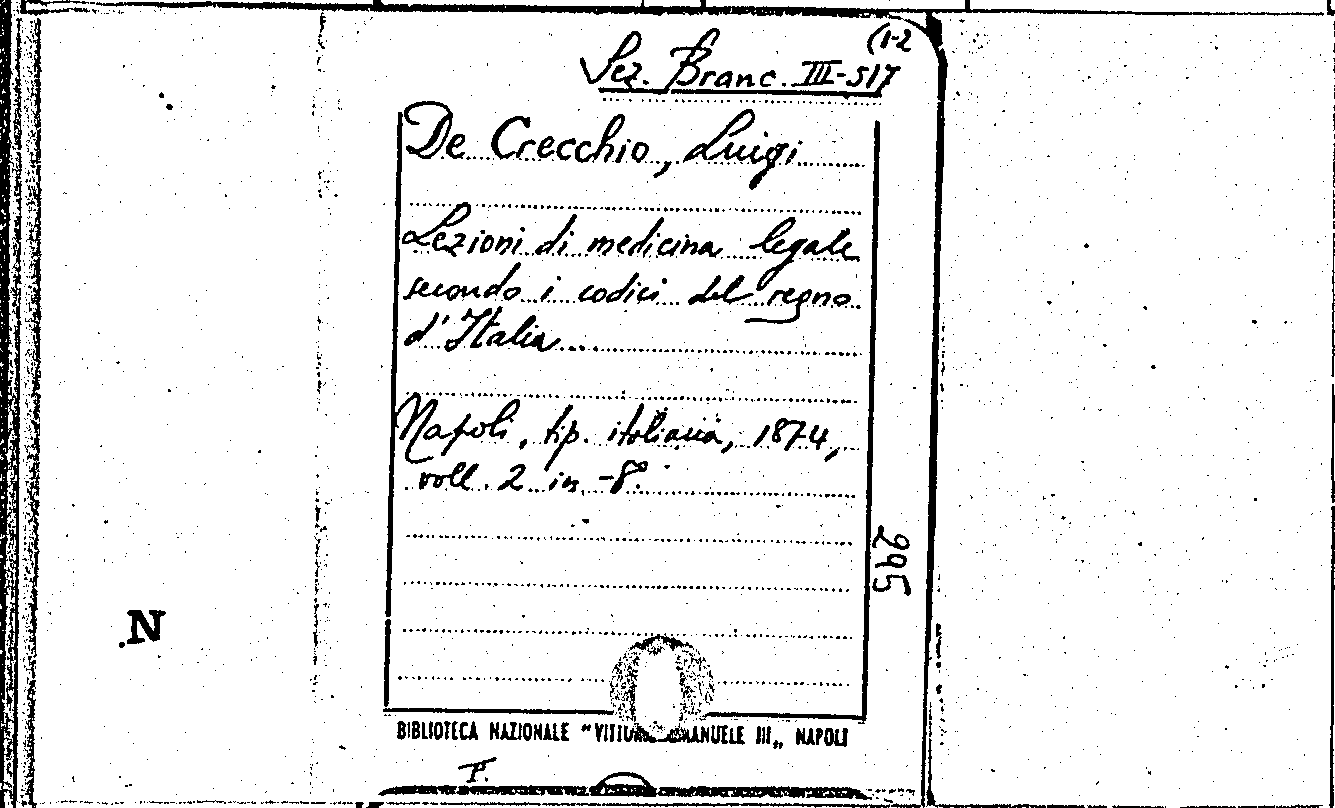 (1-2
Sez. Branc. III-517
De Crecchio, Luigi
Lezioni di medicina legale
secondo i codici del regno
d'Italia...
Napoli, tip. italiana, 1874,
voll. 2 in-8°.
295
N
BIBLIOTECA NAZIONALE "VITTORIO EMANUELE III„ NAPOLI
P.